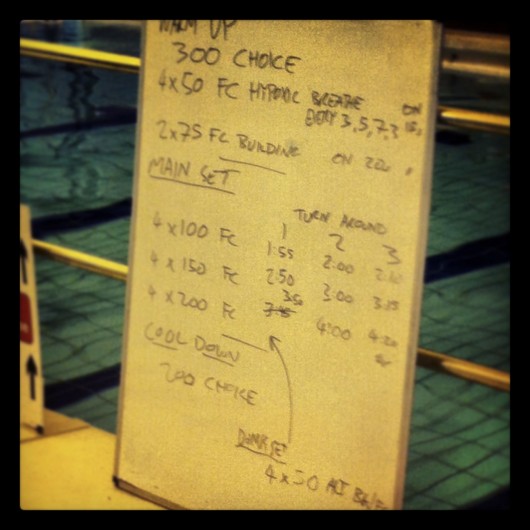 WARM UP
300 CHOICE
4x50 FC HYPOXIC BREATHE ON
EVERY 3,5,7,3 15,
2x75 FC BUILDING ON 220
MAIN SET
TURN AROUND
1 2 3
4x100 FC 1:55 2:00
4x150 FC 2:50 3:00 3:15
4x200 FC 3:45 350 4:00 4:20
COOL DOWN
200 CHOICE
4x50